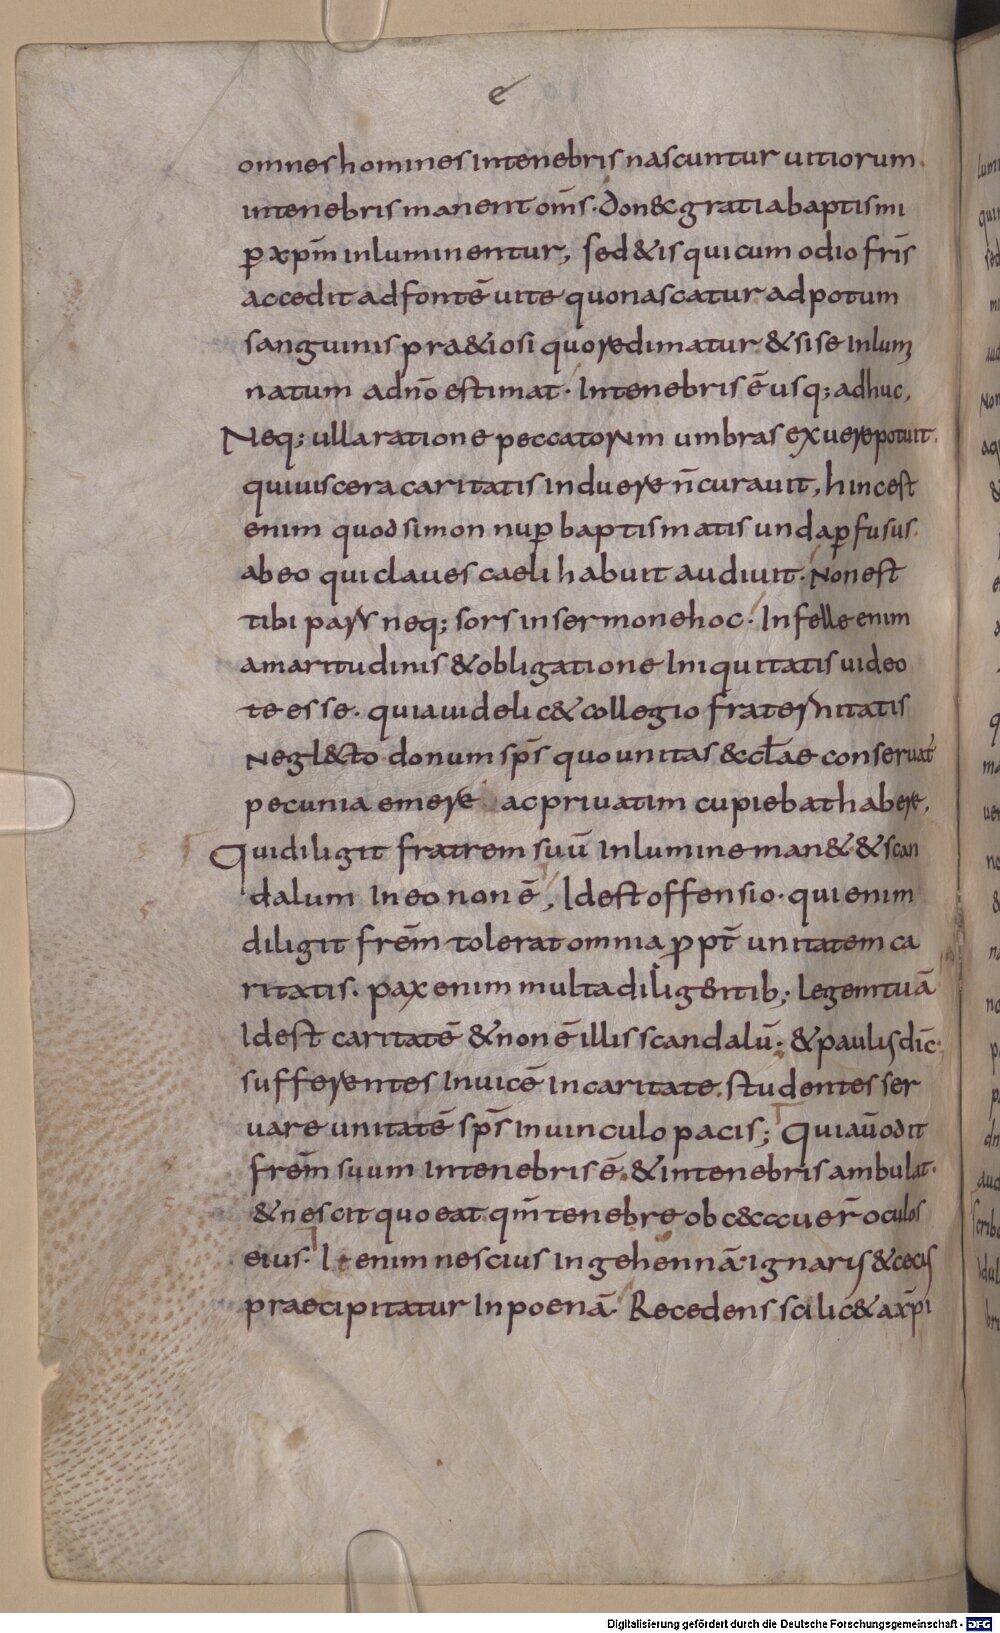 e
omnes homines in tenebris nascuntur uitiorum.
in tenebris manent om̅s. don& gratia baptismi
ꝑ xp̅m inluminentur, sed & is qui cum odio fr̅is
accedit ad fonte̅ uite quo nascatur ad potum
sanguinis pra&iosi quo redimatur & si se inlumi
natum a dn̅o estimat. In tenebris e̅ usq; adhuc,
Neq; ulla ratione peccatorum umbras exuere potuit.
qui uiscera caritatis induere n̅ curauit, hinc est
enim quod simon nuꝑ baptismatis unda ꝑfusus.
ab eo qui claues caeli habuit audiuit. Non est
tibi pars neq; sors in sermone hoc. In felle enim
amaritudinis & obligatione Iniquitatis uideo
te esse. quia uidelic& collegio fraternitatis
Negl&to donum sp̅s quo unitas &ccl̅ae conseruat̅
pecunia emere ac priuatim cupiebat habere,
Qui diligit fratrem suu̅ In lumine man& & scan
dalum In eo non e̅, Id est offensio. qui enim
diligit fre̅m tolerat omnia ꝓpt̅ unitatem ca
ritatis. pax enim multa diligentib; legem tua̅
Id est caritate̅ & non e̅ illis scandalu̅. & paulus dic̅.
sufferentes Inuice̅ in caritate. studentes ser
uare unitate̅ sp̅s In uinculo pacis; Qui au̅ odit
fre̅m suum In tenebris e̅. & in tenebris ambulat.
& nescit quo eat. qm̅ tenebre obc&ccauer̅ oculos
eius. It enim nescius In gehenna̅. ignarus & cecus
praecipitatur In poena̅. Recedens scilic& a xp̅i
Digitalisierung gefördert durch die Deutsche Forschungsgemeinschaft - DFG